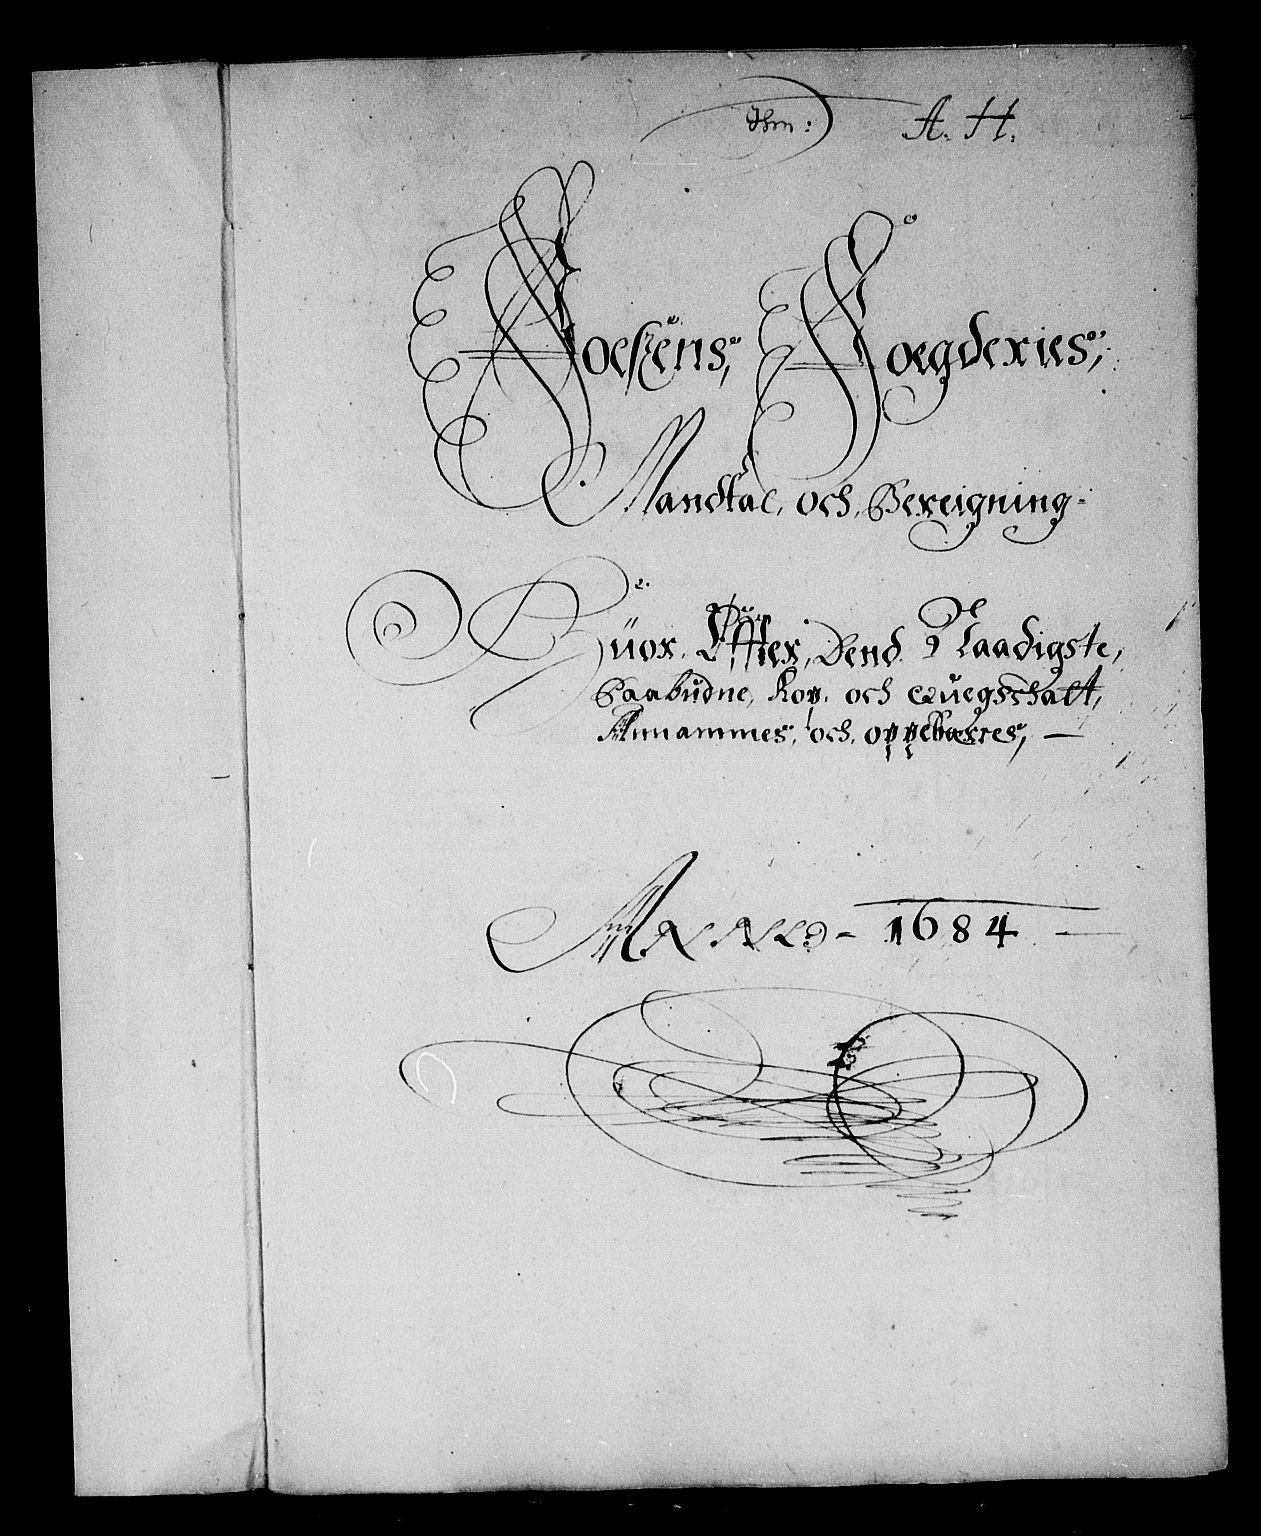 A. H.
Foesens, Foegderies,
Mandtal, och, Bereigning
Huor. Effter, Dend Naadigste,
Paabudne, Kop. och Quegschatt,
Annammes, och, oppebærres,
ANNO 1684